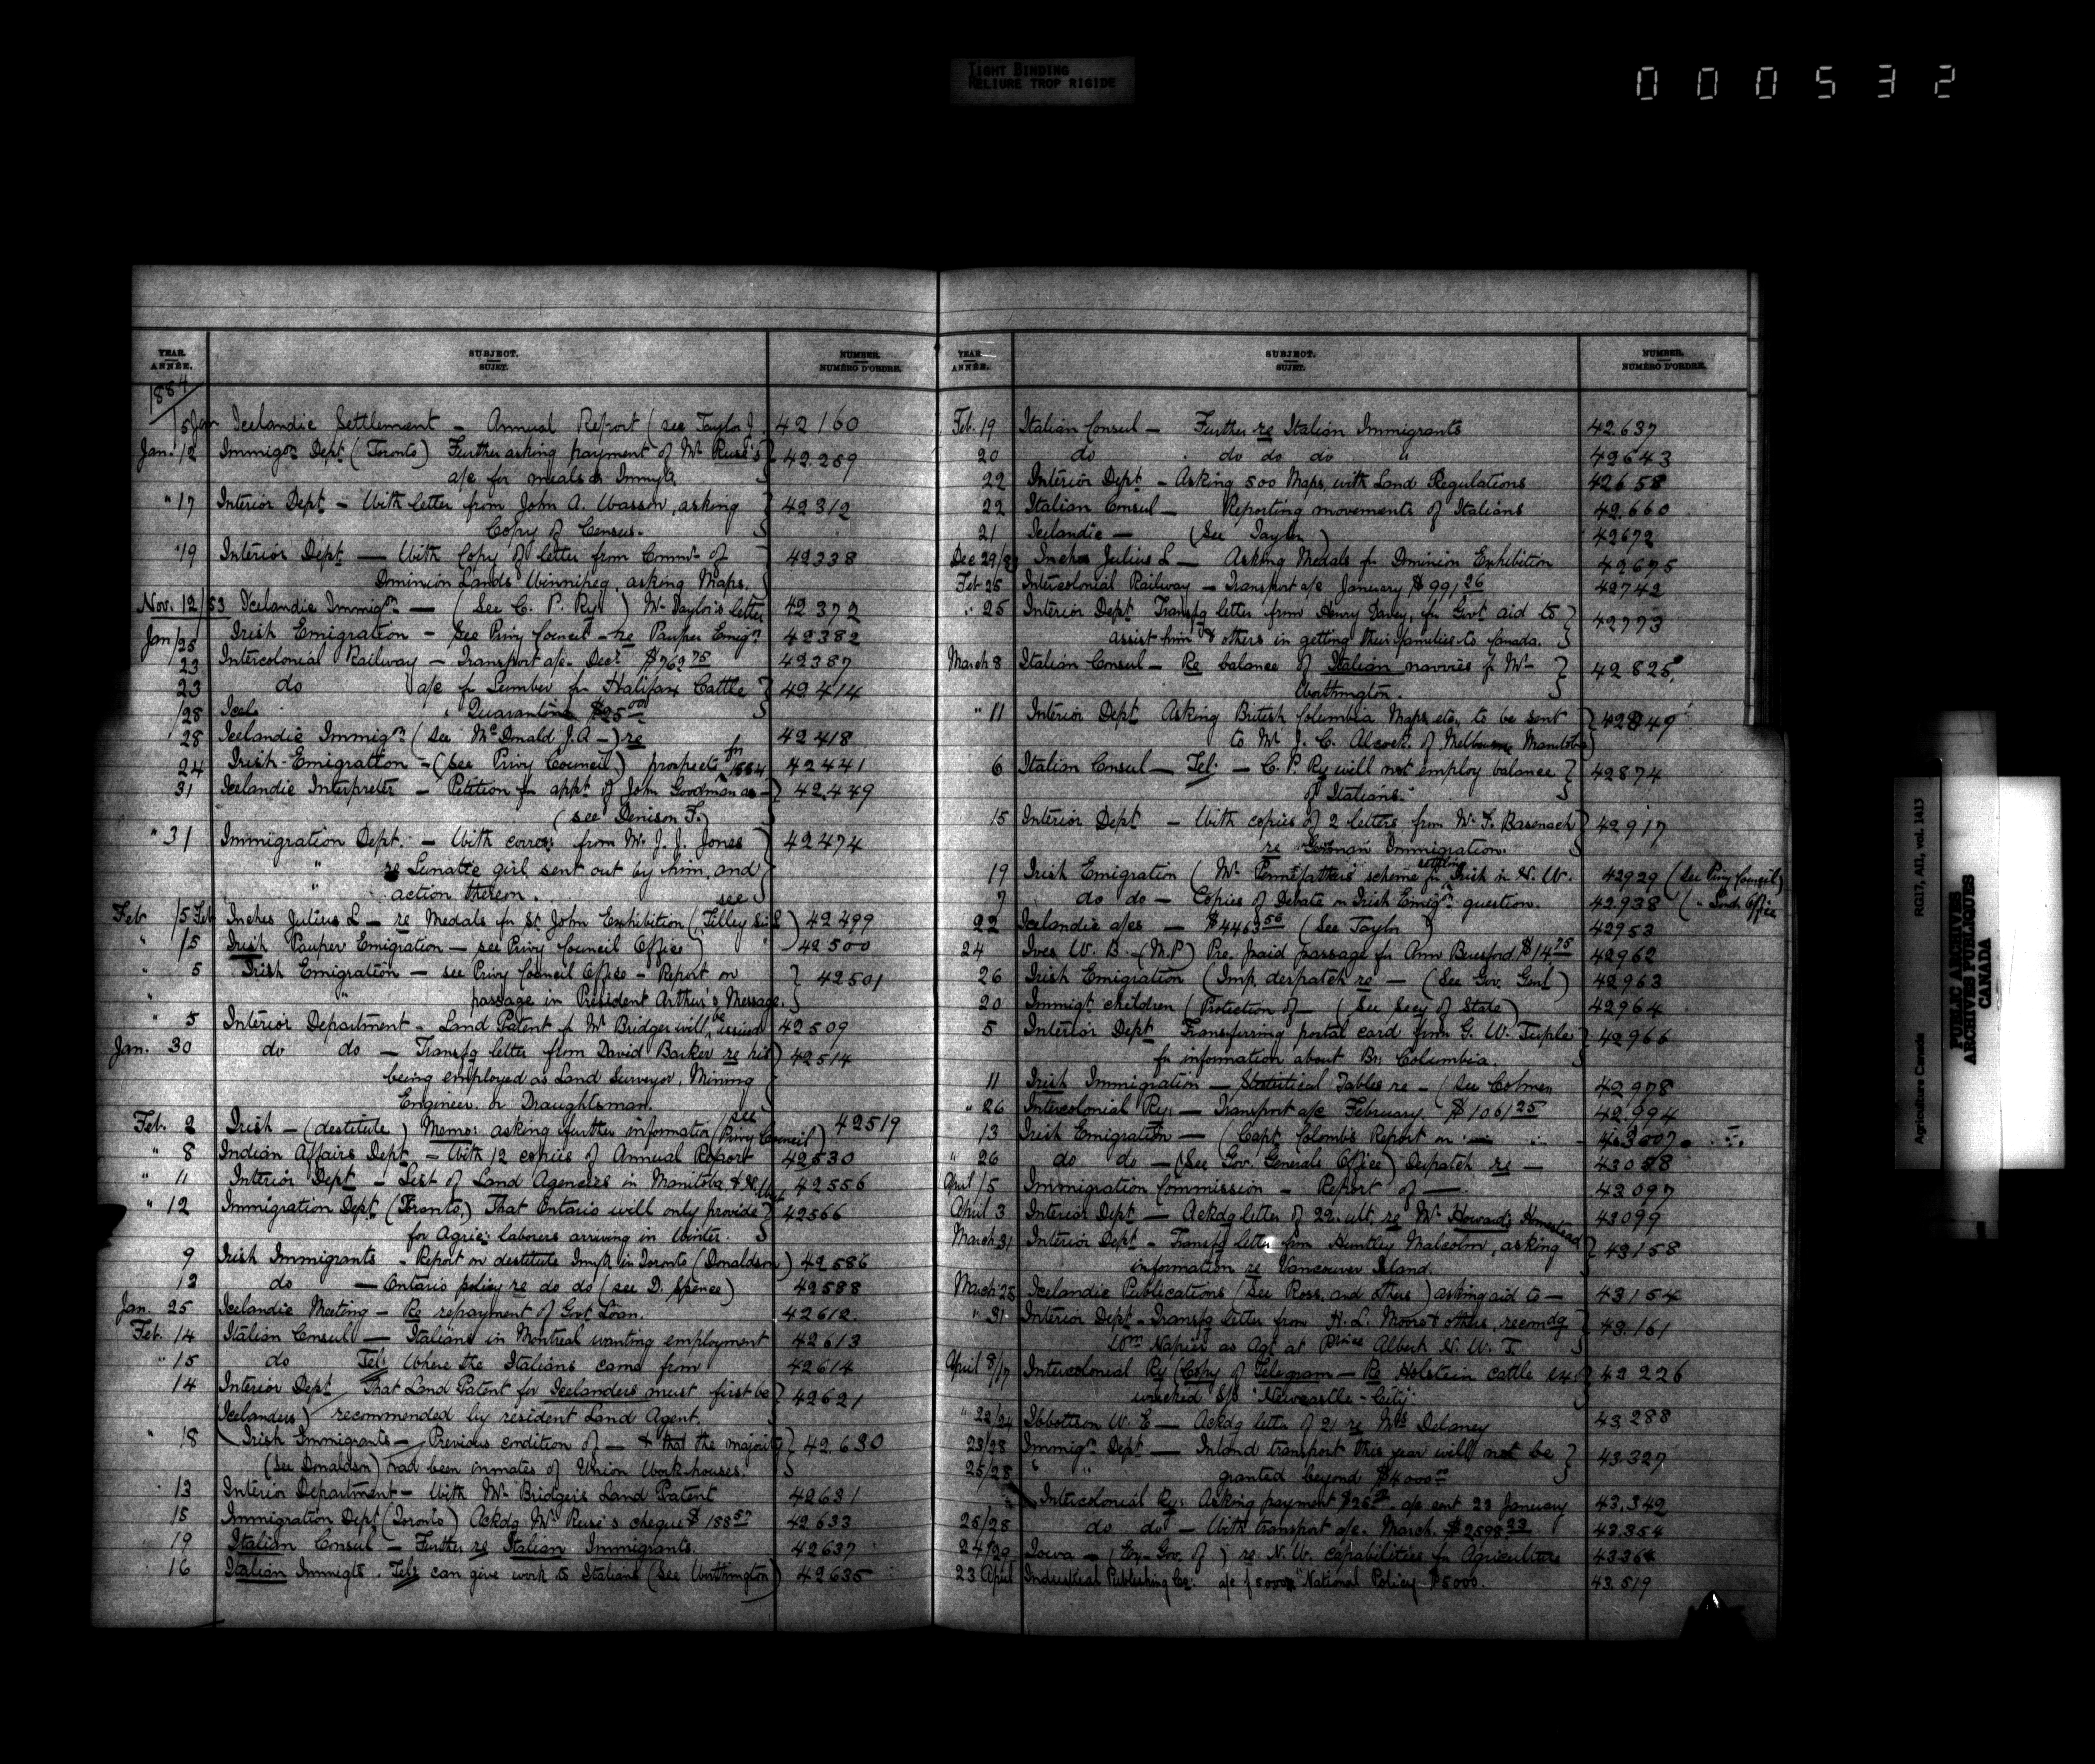 TIGHT BINDING
RELIURE TROP RIGIDE
000532
YEAR. ANNÉE. SUBJECT. SUJET. NUMBER. NUMÉRO D'ORDRE.
1884
15 Jan Icelandic Settlement - Annual Report (see Taylor J. 42160
Jan. 12 Immigon Dept (Toronto) Further asking payment of Mr Ruse's 42259
a/c for meals to Immigts
" 17 Interior Dept - With letter from John A. Wasson, asking 42312
Copy of Census.
" 19 Interior Dept — With Copy of letter from Commr of 42338
Dominion Lands Winnipeg, asking Maps.
Nov. 12/83 Icelandic Immign — (See C. P. Ry.) Mr Taylor's letter 42372
Jan/25 Irish Emigration - See Privy Council - re Pauper Emign 42382
23 Intercolonial Railway - Transport a/c. Decr $762 75 42387
23 do a/c for Lumber for Halifax Cattle 42414
/28 Icel. Quarantine $25 00
28 Icelandic Immign (see McDonald J.A -) re 42418
24 Irish-Emigration - (see Privy Council) prospects for 1884 42441
31 Icelandic Interpreter - Petition for appt of John Goodman as - 42449
(see Denison F.)
" 31 Immigration Dept. - With corres: from Mr. J. J. Jones 42474
" re Lunatic girl sent out by him, and
" action thereon. see
Feb /5 Feb Inches Julius L - re Medals for St John Exhibition (Tilley Sir L) 42499
" /5 Irish Pauper Emigration - see Privy Council Office) 42500
" 5 Irish Emigration - see Privy Council Office - Report on 42501
" passage in President Arthur's Message.
" 5 Interior Department - Land Patent for Mr Bridger will be issued 42509
Jan. 30 do do - Transfg letter from David Barker re his 42514
being employed as Land Surveyor, Mining
Engineer or Draughtsman.
Feb. 2 Irish - (destitute) Memo: asking further information (see Privy Council) 42519
" 8 Indian Affairs Dept - With 12 copies of Annual Report 42530
" 11 Interior Dept - List of Land Agencies in Manitoba & N. West 42556
" 12 Immigration Dept. (Toronto) That Ontario will only provide 42566
for Agric: laborers arriving in Winter.
9 Irish Immigrants - Report on destitute Immgts in Toronto (Donaldson) 42586
12 do — Ontario policy re do do (see D. Spence) 42588
Jan. 25 Icelandic Meeting - Re repayment of Govt Loan. 42612.
Feb. 14 Italian Consul - Italians in Montreal wanting employment 42613
" 15 do Tel: Where the Italians came from 42614
14 Interior Dept That Land Patent for Icelanders must first be 42621
(Icelanders) recommended by resident Land Agent.
" 18 Irish Immigrants - Previous condition of - & that the majority 42,630
(see Donaldson) had been inmates of Union Work-houses.
13 Interior Department - With Mr Bridger's Land Patent 42631
15 Immigration Dept (Toronto) Ackdg Mr Ruse's cheque $188 57 42633
19 Italian Consul - Further re Italian Immigrants. 42637
16 Italian Immigts. Tel: can give work to Italians (See Worthington) 42635
YEAR. ANNÉE. SUBJECT. SUJET. NUMBER. NUMÉRO D'ORDRE.
Feb. 19 Italian Consul - Further re Italian Immigrants 42637
20 do do do do " 42643
22 Interior Dept - Asking 500 Maps, with Land Regulations 42658
22 Italian Consul - Reporting movements of Italians 42660
21 Icelandic - (See Taylor) 42672
Dec 29/83 Inches Julius L - Asking Medals for Dominion Exhibition 42675
Feb 25 Intercolonial Railway - Transport a/c January $991 26 42742
" 25 Interior Dept Transfg letter from Henry Vavey, for Govt aid to 42773
assist him & others in getting their families to Canada.
March 8 Italian Consul - Re balance of Italian navvies for Mr - 42825
Worthington.
" 11 Interior Dept Asking British Columbia Maps, etc, to be sent 42849
to Mr J. C. Alcock, of Melbourne Manitoba)
6 Italian Consul - Tel: - C. P. Ry will not employ balance 42874
of Italians.
15 Interior Dept - With copies of 2 letters from Mr F. Basenach 42917
re German Immigration.
19 Irish Emigration (Mr Pennefather's scheme for settling Irish in N. W. 42929 (see Privy Council)
7 do do - Copies of Debate on Irish Emign question. 42938 ( " Office
22 Icelandic a/cs - $4463 56 (See Taylor) 42953
24 Ives W. B. (M.P.) Pre. paid passage for Ann Beresford, $14.75 42962
26 Irish Emigration (Imp. despatch re - (See Gov. Genl) 42963
20 Immigt children (Protection of - (See Secy of State) 42964
5 Interior Dept Transferring postal card from G. W. Tuple 42966
for information about Br. Columbia.
11 Irish Immigration - Statistical Tables re - (See Colmer 42978
" 26 Intercolonial Ry: - Transport a/c February. $1061 25 42994
13 Irish Emigration - (Capt. Colomb's Report on - 43007
" 26 do do - (See Gov. Generals Office) Despatch re - 43058
April 15 Immigration Commission - Report of - 43097
April 3 Interior Dept - Ackdg letter of 22. ult. re Mr Howard's Homestead 43099
March 31 Interior Dept - Transfg letter from Huntley Malcolm, asking 43158
information re Vancouver Island.
March 25 Icelandic Publications (See Ross. and others) asking aid to - 43154
" 31 Interior Dept - Transfg letter from H. L. Moore & others, recomdg 43.161
Wm Napier as Agt at Prince Albert N. W. T.
April 8/17 Intercolonial Ry (Copy of Telegram - Re Holstein cattle ex. 43226
wrecked S/S "Newcastle - City"
" 22/24 Ibbottson W. E - Ackdg letter of 21 re Mrs Delaney 43288
23/28 Immign Dept - Inland transport this year will not be 43327
25/28 " " granted beyond $4000 00
Intercolonial Ry: Asking payment $25 00 a/c sent 23 January 43,342
25/28 do do - With transport a/c. March. $2598 23 43354
24/29 Iowa - (Ex-Gov. of) re N. W. capabilities for Agriculture 43364
23 April Industrial Publishing Co: a/c for 5000 "National Policy. $5000. 43.519
Agriculture Canada RG17, AII, vol. 1413
PUBLIC ARCHIVES
ARCHIVES PUBLIQUES
CANADA